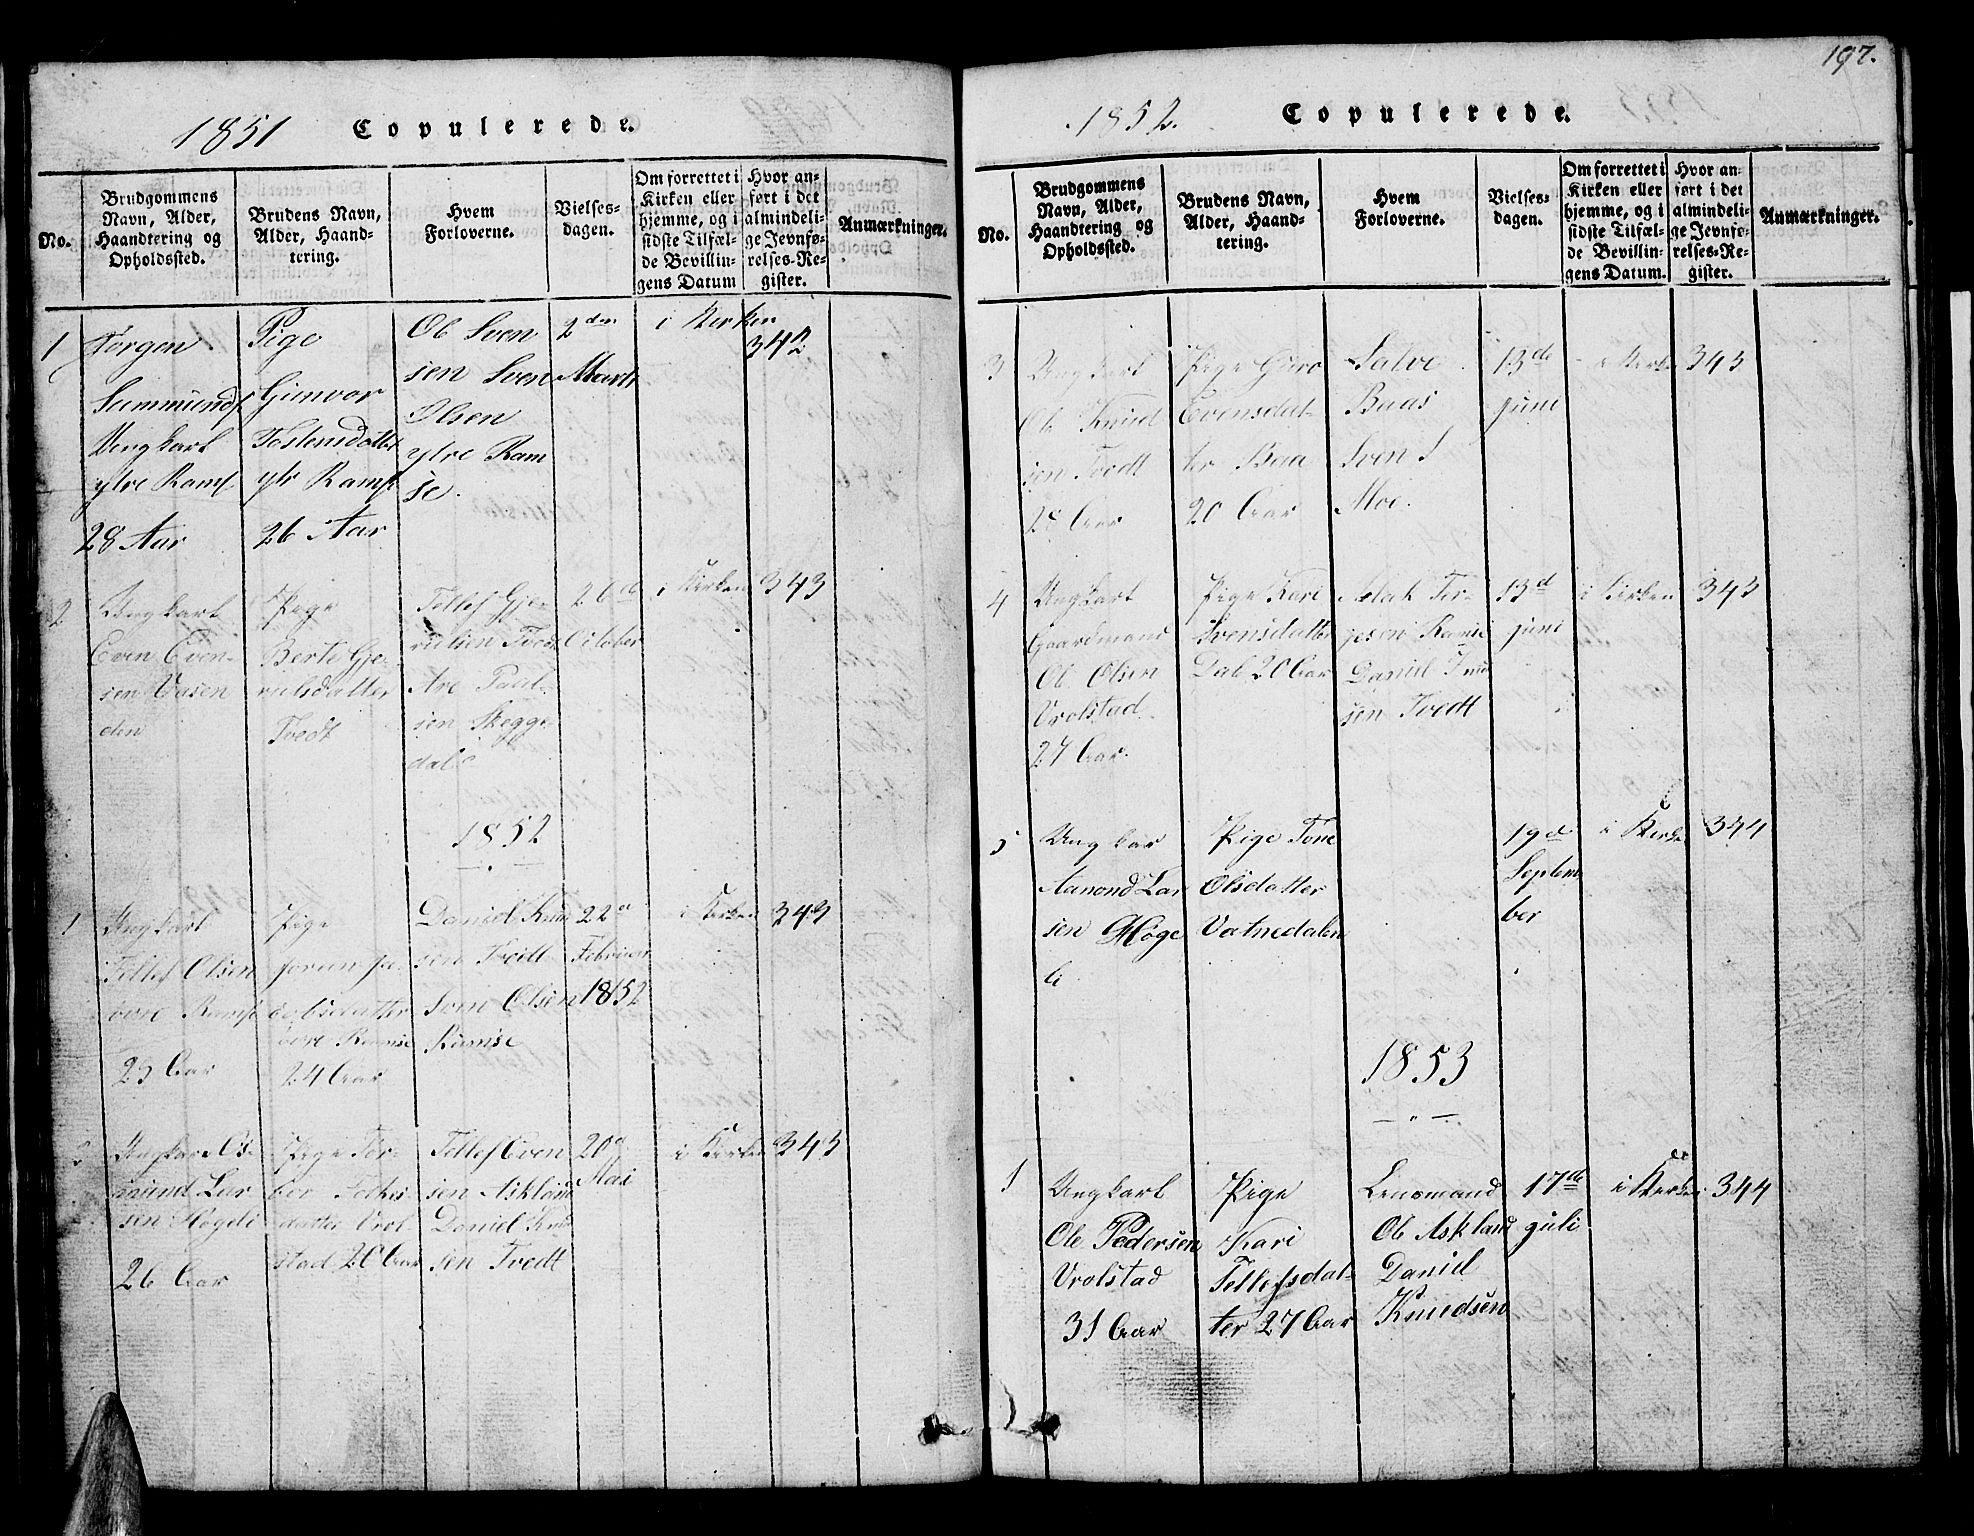 197.
1851 Copulerede.
No.
Brudgommens
Navn, Alder,
Haandtering og
Opholdssted.
Brudens Navn,
Alder, Haand-
tering.
Hvem
Forloverne.
Vielses-
dagen.
Om forrettet i
Kirken eller
hjemme, og i
sidste Tilfæl-
de Bevillin-
gens Datum
Hvor an-
ført i det
almindeli-
ge Jevnfø-
relses-Re-
gister.
Anmærkninger.
1
Jörgen
Summunds
Ungkarl
ytre Rams
28 Aar
Pige
Gunvor
Tostensdatter
ytr Rams
26 Aar
Ole Sven
sen Sven
Olsen
ytre Ram
se.
2den
Marts
i Kirken
342
2
Ungkarl
Even Even-
sen Vasen
den
Pige
Berte Gje-
rulsdatter
Tvedt
Tellef Gje-
rulsen Tvedt
Are Paal-
sen Skegge
dal
26de
October
i Kirken
343
1852
1
Ungkarl
Tellef Olsen
övre Rams
23 Aar
Pige
Jorun Ja-
cobsdatter
övre Ramse
24 Aar
Daniel Knu
sen Tvedt
Sven Olsen
Ramse
22d
Februar
1852
i Kirken
343
2
Ungkar Os-
mund Lar
sen Högeli
26 Aar
Pige Tor-
bor
datter Vrol
stad 20 Aar
Tellef Even
sen Askland
Daniel Knu
sen Tvedt
20d
Mai
i Kirken
343
1852. Copulerede.
No.
Brudgommens
Navn, Alder,
Haandtering og
Opholdssted.
Brudens Navn,
Alder, Haand-
tering.
Hvem
Forloverne.
Vielses-
dagen.
Om forrettet i
Kirken eller
hjemme, og i
sidste Tilfæl-
de Bevillin-
gens Datum.
Hvor an-
ført i det
almindeli-
ge Jevnfø-
relses-Re-
gister.
Anmærkninger.
3
Ungkarl
Ole Knud
sen Tvedt
25 Aar
Pige Guro
Evensdat-
ter Baa
20 Aar
Salve
Baas
Sven S
Moe.
13de
juni
i Kirken
343
4
Ungkarl
Gaardmand
Ole Olsen
Vrolstad
27 Aar.
Pige Kari
Svensdatter
Dal 20 Aar
Aslak Ter-
jesen Ramse
Daniel Knu
sen Tvedt
13d
juni
i Kirken
343
5
Ungkar
Aanond Lar
sen Höge
li
Pige Tone
Olsdatter
Vatnedalen
19d
Septem
ber
i Kirke
344
1853
1
Ungkarl
Ole Pedersen
Vrolstad
31 Aar
Pige
Kari
Tellefsdat-
ter 27 Aar
Lensmand
Ole Askland
Daniel
Knudsen
17de
juli
i Kirken
344